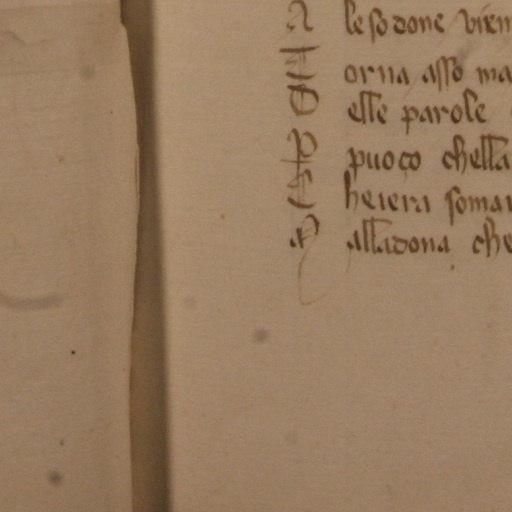 A le so done vien
T orna asso ma
D elle parole
P puoco chella
C heiera soma
A alladona che